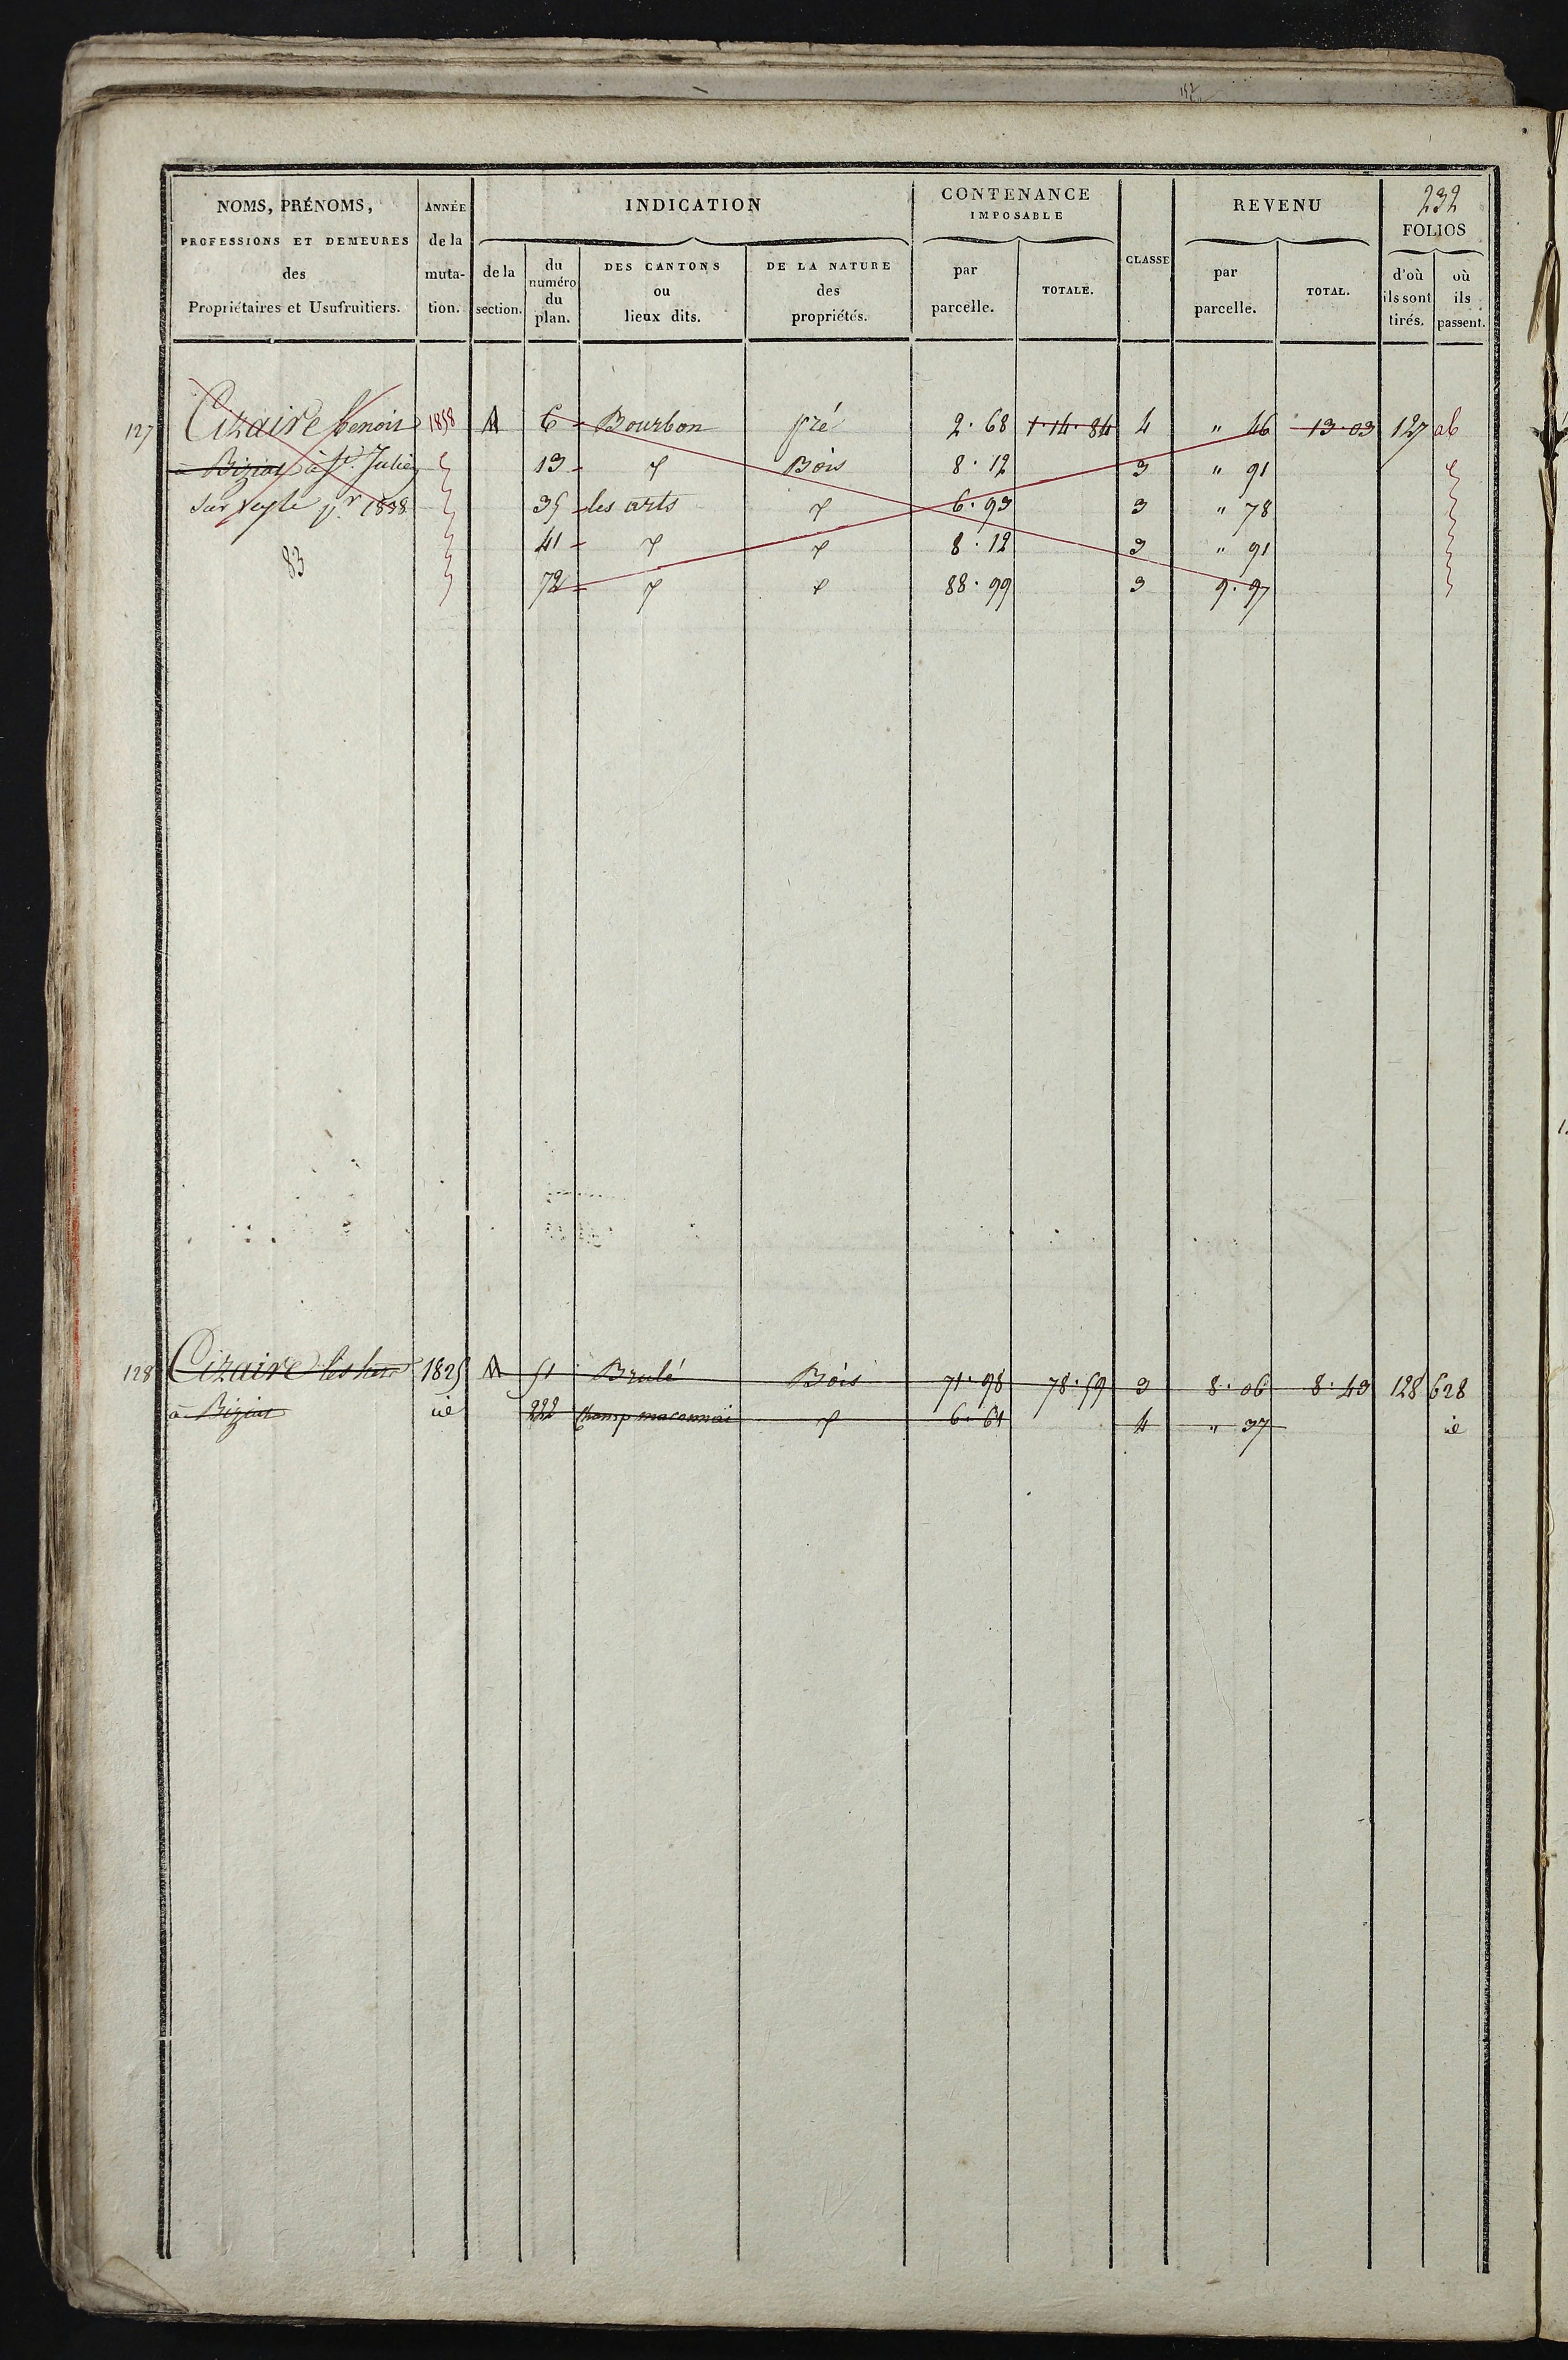 232
NOMS, PRÉNOMS, PROFESSIONS ET DEMEURES des Propriétaires et Usufruitiers.
ANNÉE de la mutation.
INDICATION
de la section.
du numéro du plan.
DES CANTONS ou lieux dits.
DE LA NATURE des propriétés.
CONTENANCE IMPOSABLE
par parcelle.
TOTALE.
CLASSE
REVENU
par parcelle.
TOTAL.
FOLIOS
d'où ils sont tirés.
où ils passent.
127 Cizaire benoit 1858 A 6 Bourbon pré 2.68 1.14.84 4 " 46 13.03 127 ab
à Biziat à St. Julien 13 Bois 8.12 3 " 91
sur veyle pr 1838 35 les arts 6.93 3 " 78
83 41 8.12 3 " 91
72 88.99 3 9.97
128 Cizaire 1825 A 51 Brulé Bois 71.98 78.59 3 8.06 8.43 128 628
à Biziat id 222 Champ maconnais 6.61 4 " 37 id